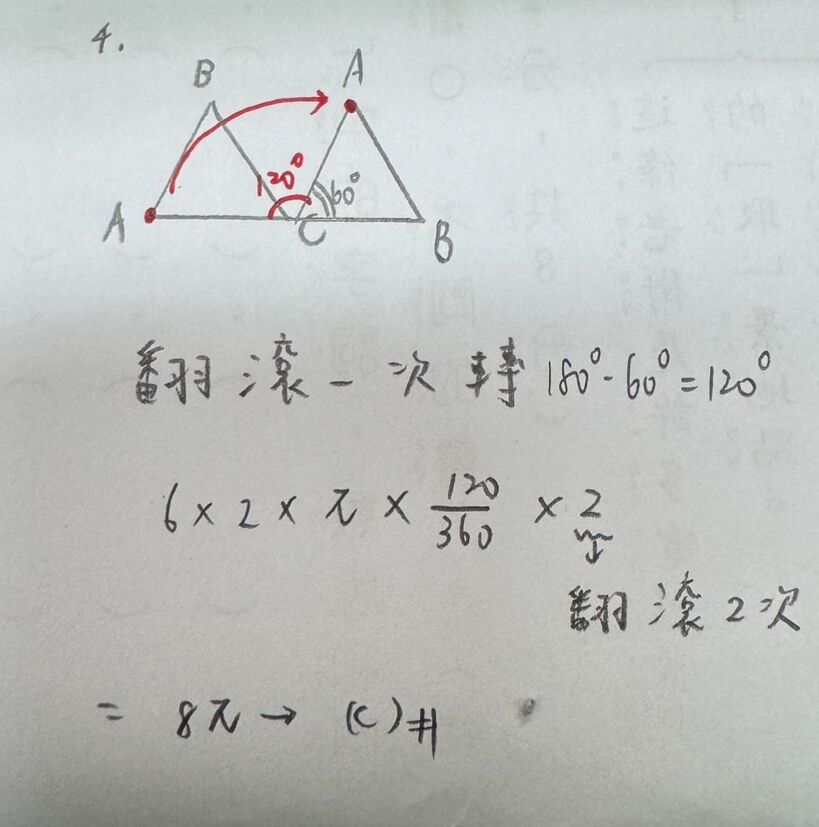 4.
B A
120° 60°
A C B
翻滾一次轉 180° - 60° = 120°
6 × 2 × π × 120/360 × 2
翻滾2次
= 8π → (C)#